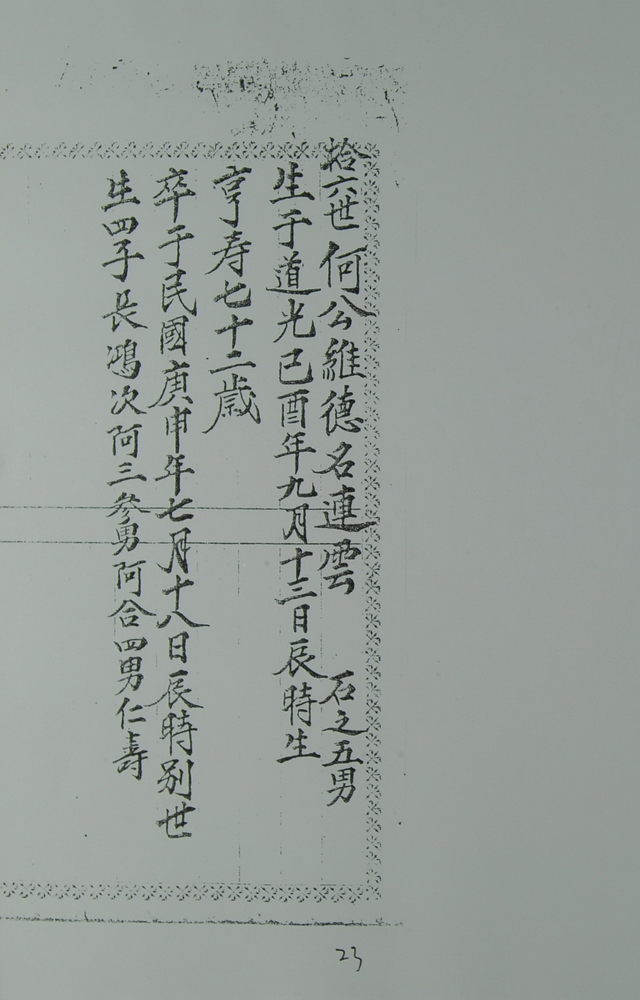 拾六世何公維德名連雲 石之五男
生于道光己酉年九月十三日辰時生
亨寿七十二歲
卒于民國庚申年七月十八日辰時別世
生四子長鴻次阿三參男阿合四男仁壽
23